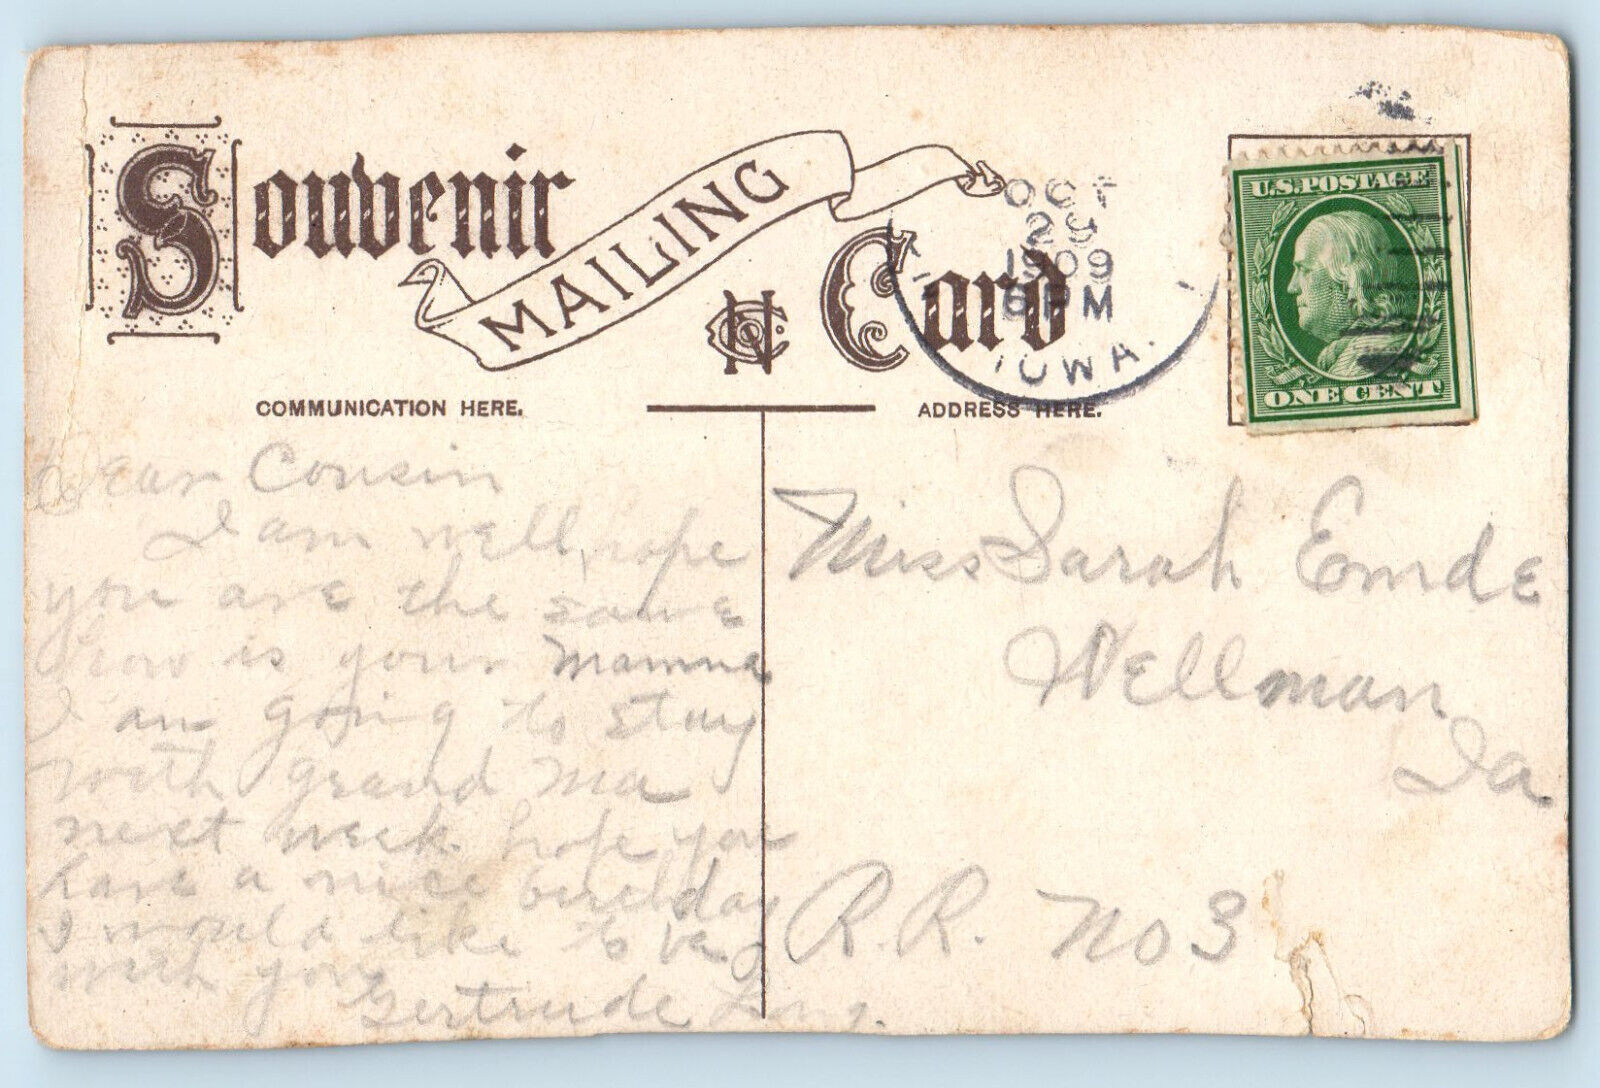 Souvenir
MAILING
Card
OCT
29
1909
6 PM
IOWA.
U.S. POSTAGE
ONE CENT
COMMUNICATION HERE.
ADDRESS HERE.
Dear Cousin
I am well, hope
you are the same
how is your Mamma
I am going to stay
with grand ma
next week hope you
have a nice birthday
I would like to be
with you
Gertrude
Miss Sarah Emde
Wellman
Ia
R.R. No 3